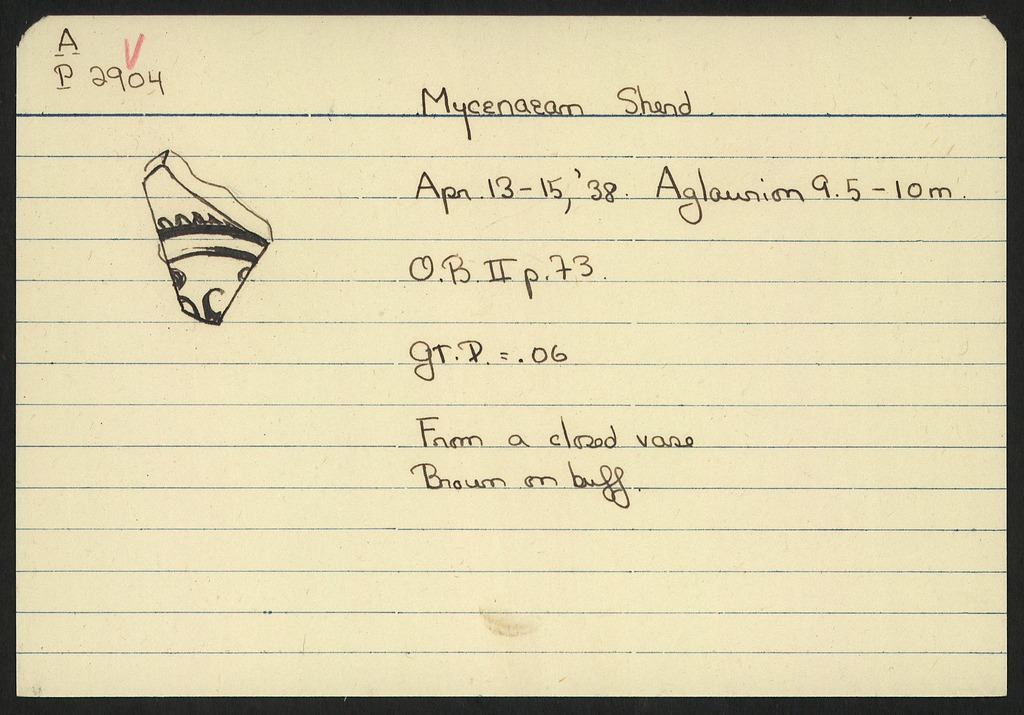 A
P 2904
Mycenaean Sherd
Apr. 13-15, '38. Aglaurion 9.5-10m.
O.B. II p.73.
gr.P. = .06
From a closed vase
Brown on buff.